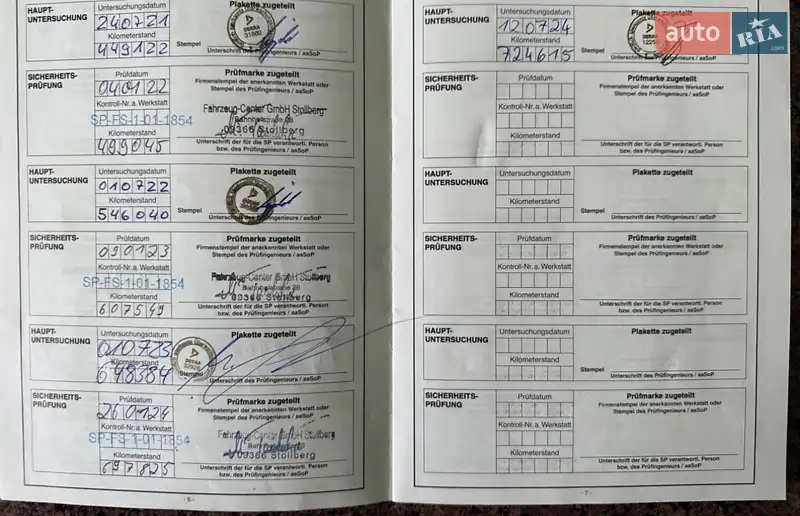 HAUPT-
UNTERSUCHUNG
Untersuchungsdatum
240721
Kilometerstand
449122
Plakette zugeteilt
DEKRA
Stempel
Unterschrift des Prüfingenieurs / aaSoP
SICHERHEITS-
PRÜFUNG
Prüfdatum
040122
Kontroll-Nr. a. Werkstatt
SP-FS-1-01-1854
Kilometerstand
499045
Prüfmarke zugeteilt
Firmenstempel der anerkannten Werkstatt oder
Stempel des Prüfingenieurs / aaSoP
Fahrzeug-Center GmbH Stollberg
Bahnhofstraße
09366 Stollberg
Unterschrift der für die SP verantwortl. Person
bzw. des Prüfingenieurs / aaSoP
HAUPT-
UNTERSUCHUNG
Untersuchungsdatum
010722
Kilometerstand
546040
Plakette zugeteilt
Stempel
Unterschrift des Prüfingenieurs / aaSoP
SICHERHEITS-
PRÜFUNG
Prüfdatum
090123
Kontroll-Nr. a. Werkstatt
SP-FS-1-01-1854
Kilometerstand
607549
Prüfmarke zugeteilt
Firmenstempel der anerkannten Werkstatt oder
Stempel des Prüfingenieurs / aaSoP
Fahrzeug-Center GmbH Stollberg
Bahnhofstraße
09366 Stollberg
Unterschrift der für die SP verantwortl. Person
bzw. des Prüfingenieurs / aaSoP
HAUPT-
UNTERSUCHUNG
Untersuchungsdatum
010723
Kilometerstand
648384
Plakette zugeteilt
DEKRA
Stempel
Unterschrift des Prüfingenieurs / aaSoP
SICHERHEITS-
PRÜFUNG
Prüfdatum
260124
Kontroll-Nr. a. Werkstatt
SP-FS-1-01-1854
Kilometerstand
697825
Prüfmarke zugeteilt
Firmenstempel der anerkannten Werkstatt oder
Stempel des Prüfingenieurs / aaSoP
Fahrzeug-Center GmbH Stollberg
09366 Stollberg
Unterschrift der für die SP verantwortl. Person
bzw. des Prüfingenieurs / aaSoP
- 6 -
HAUPT-
UNTERSUCHUNG
Untersuchungsdatum
120724
Kilometerstand
724615
Plakette zugeteilt
DEKRA
Stempel
Unterschrift des Prüfingenieurs / aaSoP
auto RIA
.com
SICHERHEITS-
PRÜFUNG
Prüfdatum
Kontroll-Nr. a. Werkstatt
Kilometerstand
Prüfmarke zugeteilt
Firmenstempel der anerkannten Werkstatt oder
Stempel des Prüfingenieurs / aaSoP
Unterschrift der für die SP verantwortl. Person
bzw. des Prüfingenieurs / aaSoP
HAUPT-
UNTERSUCHUNG
Untersuchungsdatum
Kilometerstand
Plakette zugeteilt
Stempel
Unterschrift des Prüfingenieurs / aaSoP
SICHERHEITS-
PRÜFUNG
Prüfdatum
Kontroll-Nr. a. Werkstatt
Kilometerstand
Prüfmarke zugeteilt
Firmenstempel der anerkannten Werkstatt oder
Stempel des Prüfingenieurs / aaSoP
Unterschrift der für die SP verantwortl. Person
bzw. des Prüfingenieurs / aaSoP
HAUPT-
UNTERSUCHUNG
Untersuchungsdatum
Kilometerstand
Plakette zugeteilt
Stempel
Unterschrift des Prüfingenieurs / aaSoP
SICHERHEITS-
PRÜFUNG
Prüfdatum
Kontroll-Nr. a. Werkstatt
Kilometerstand
Prüfmarke zugeteilt
Firmenstempel der anerkannten Werkstatt oder
Stempel des Prüfingenieurs / aaSoP
Unterschrift der für die SP verantwortl. Person
bzw. des Prüfingenieurs / aaSoP
- 7 -